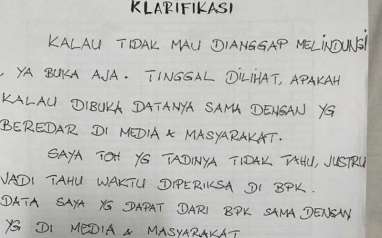 KLARIFIKASI
KALAU TIDAK MAU DIANGGAP MELINDUNGI
, YA BUKA AJA. TINGGAL DILIHAT, APAKAH
KALAU DIBUKA DATANYA SAMA DENGAN YG
BEREDAR DI MEDIA & MASYARAKAT.
SAYA TOH YG TADINYA TIDAK TAHU, JUSTRU
JADI TAHU WAKTU DIPERIKSA DI BPK.
DATA SAYA YG DAPAT DARI BPK SAMA DENGAN
YG DI MEDIA & MASYARAKAT